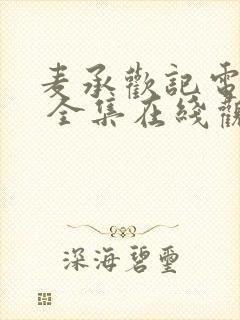 麦承歡記電
全集在綫觀
深海碧璽